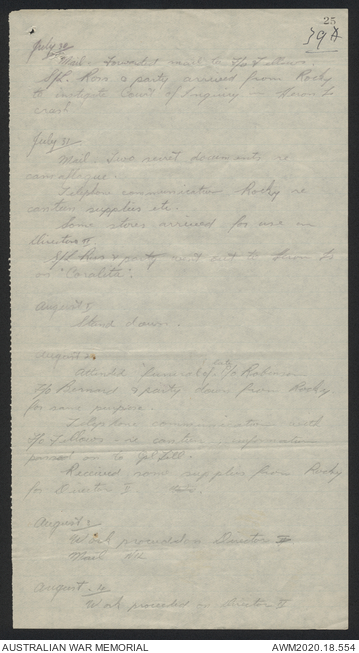 25
39A
July 30
Mail - Forwarded mail to F/O Fellows.
S/L Ross & party arrived from Rocky
to Court of Inquiry - Heron Is
crash
July 31
Mail. Two secret documents re
camouflage.
Telephone communication Rocky re
canteen supplies etc.
Some stores arrived for use on
Director II
S/L Ross & party went out to Heron Is
on "Coralita".
August 1
Stand down.
August 2
Attended funeral of F/O Robinson
F/O Bernard & party down from Rocky
for same purpose.
Telephone communication with
F/O Fellows - re canteen - information
passed on to
Received some supplies from Rocky
for Director II
August 3
Work proceeded on Director II
Mail Nil
August 4
Work proceeded on Director II
AUSTRALIAN WAR MEMORIAL
AWM2020.18.554